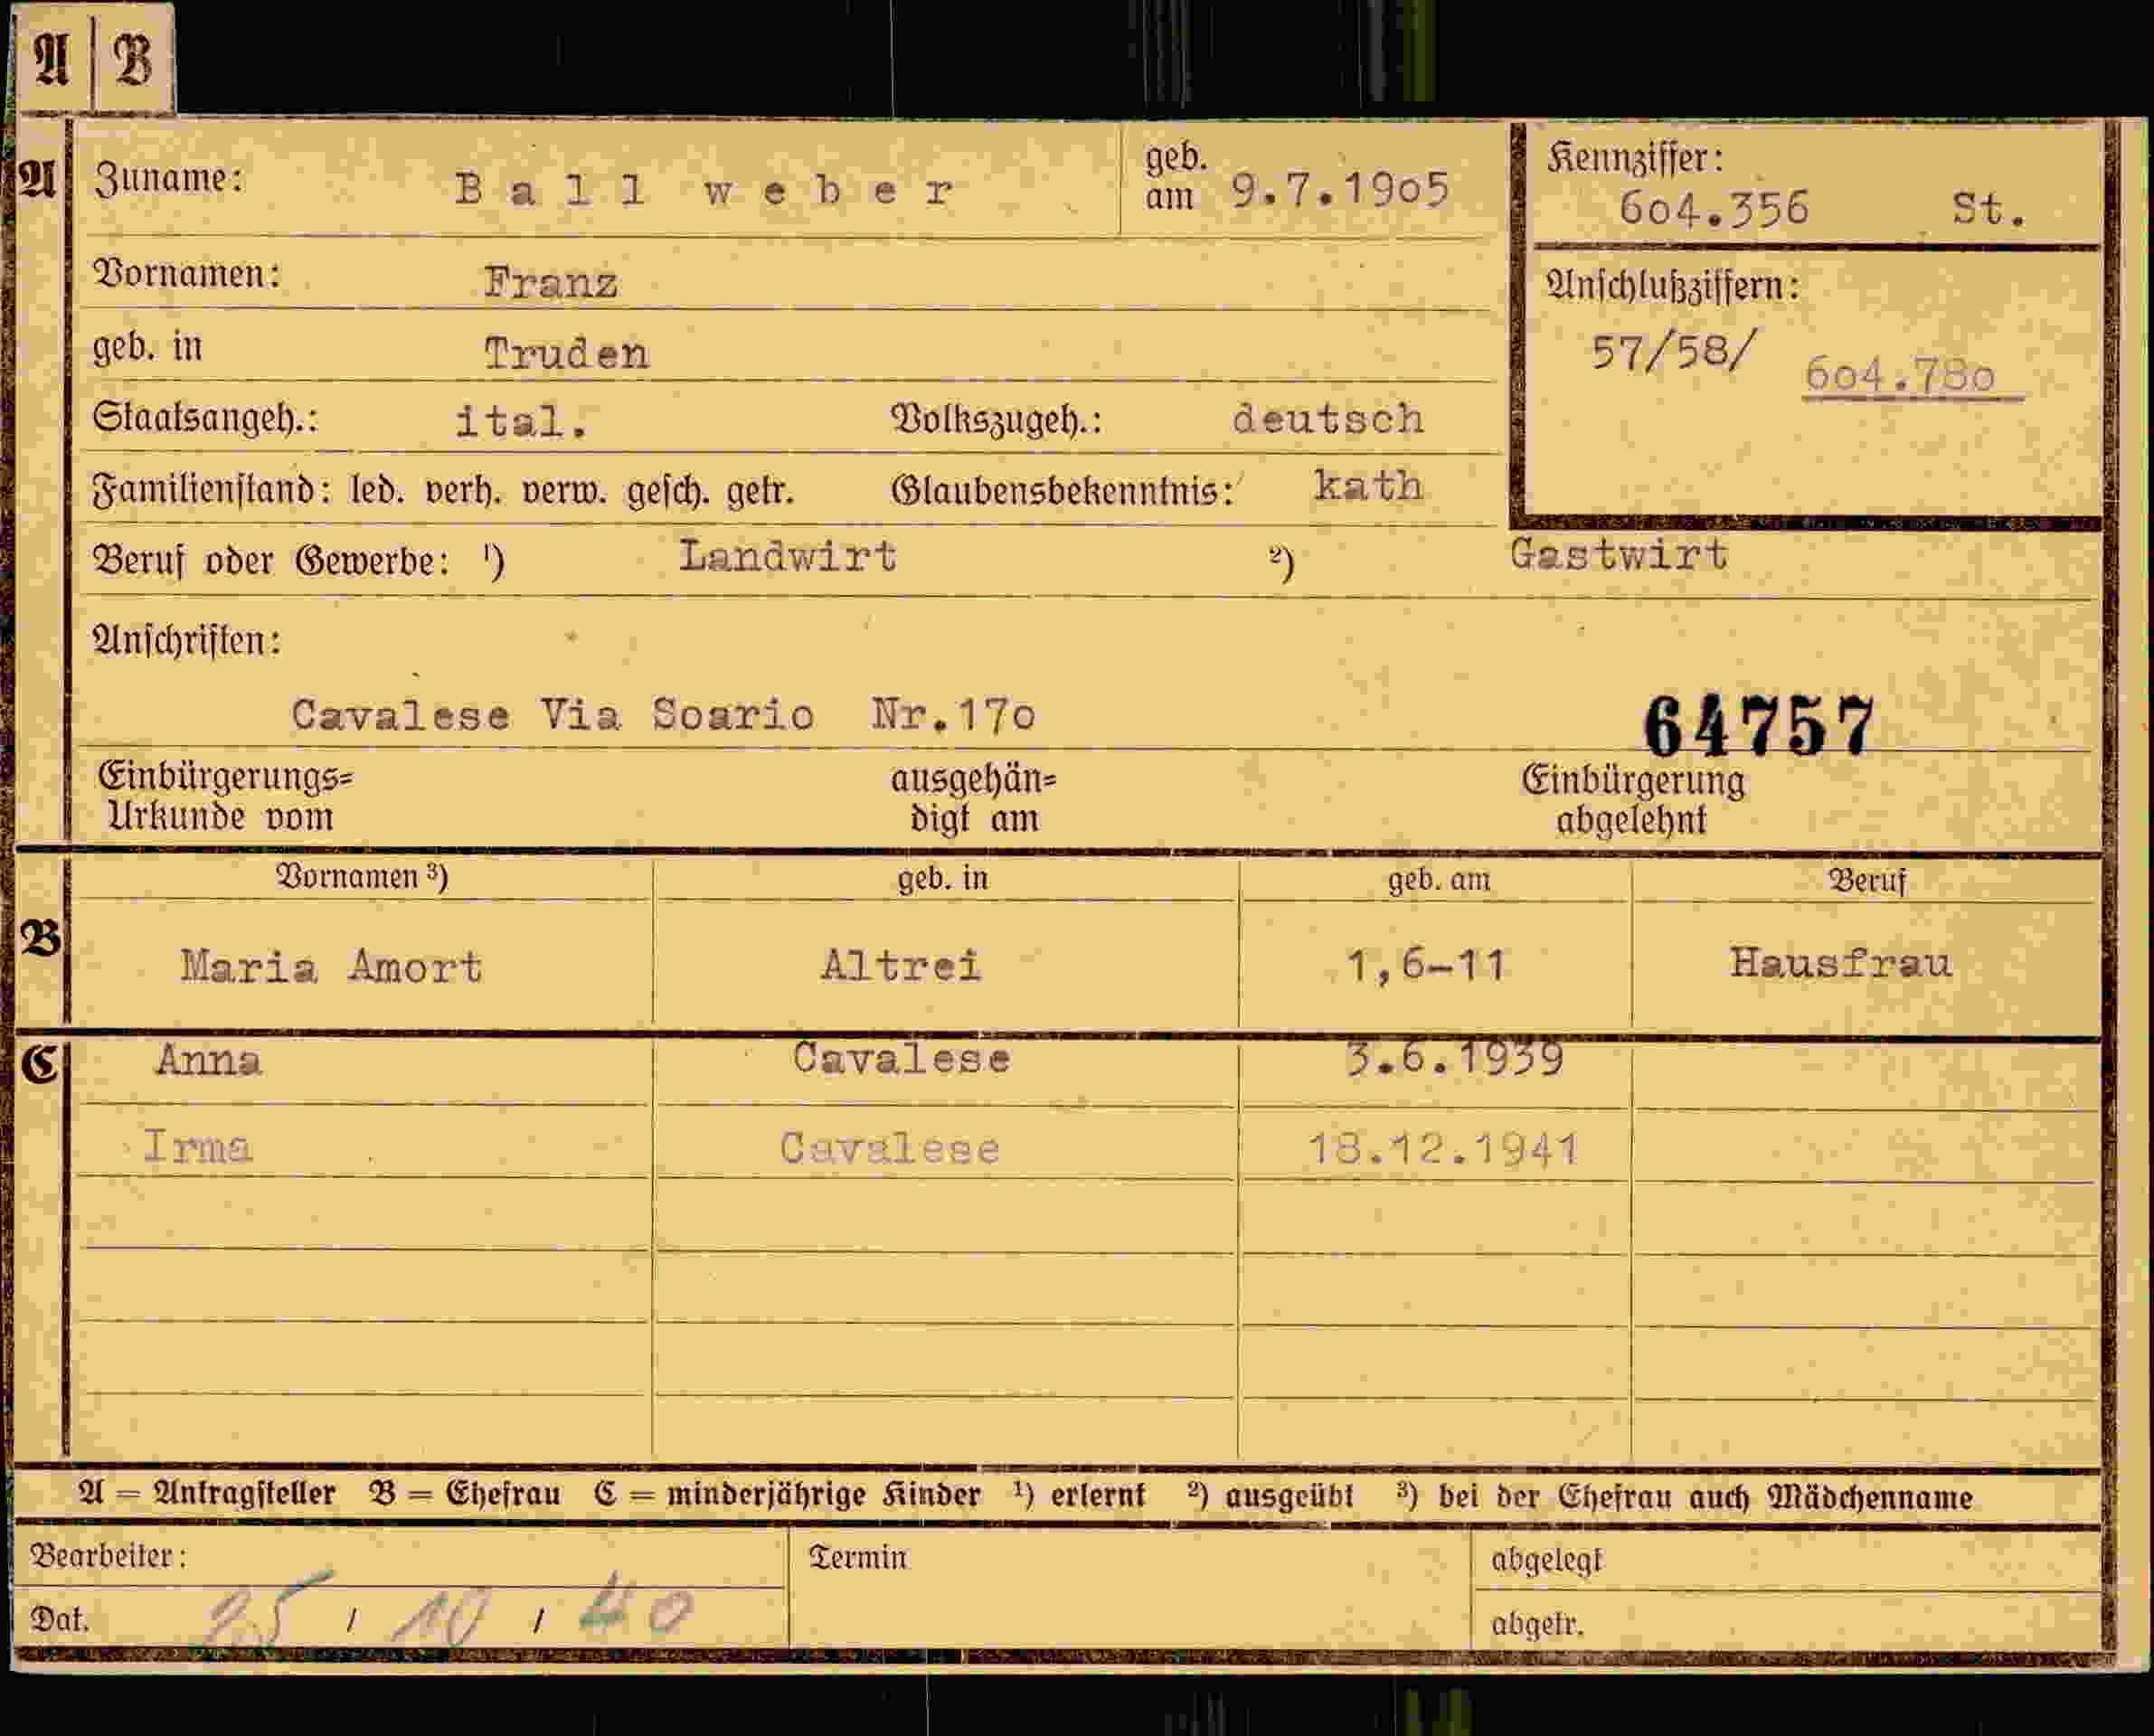 A B
A Zuname: Ball weber geb. am 9.7.1905 Kennziffer: 604.356 St.
Vornamen: Franz Anschlußziffern:
geb. in Truden 57/58/ 604.780
Staatsangeh.: ital. Volkszugeh.: deutsch
Familienstand: led. verh. verw. gesch. getr. Glaubensbekenntnis: kath
Beruf oder Gewerbe: ¹) Landwirt ²) Gastwirt
Anschriften:
Cavalese Via Soario Nr.170 64757
Einbürgerungs= ausgehän= Einbürgerung
Urkunde vom digt am abgelehnt
Vornamen ³) geb. in geb. am Beruf
B Maria Amort Altrei 1,6-11 Hausfrau
C Anna Cavalese 3.6.1939
Irma Cavalese 18.12.1941
A = Antragsteller B = Ehefrau C = minderjährige Kinder ¹) erlernt ²) ausgeübt ³) bei der Ehefrau auch Mädchenname
Bearbeiter: Termin abgelegt
Dat. 25 / 10 / 40 abgetr.